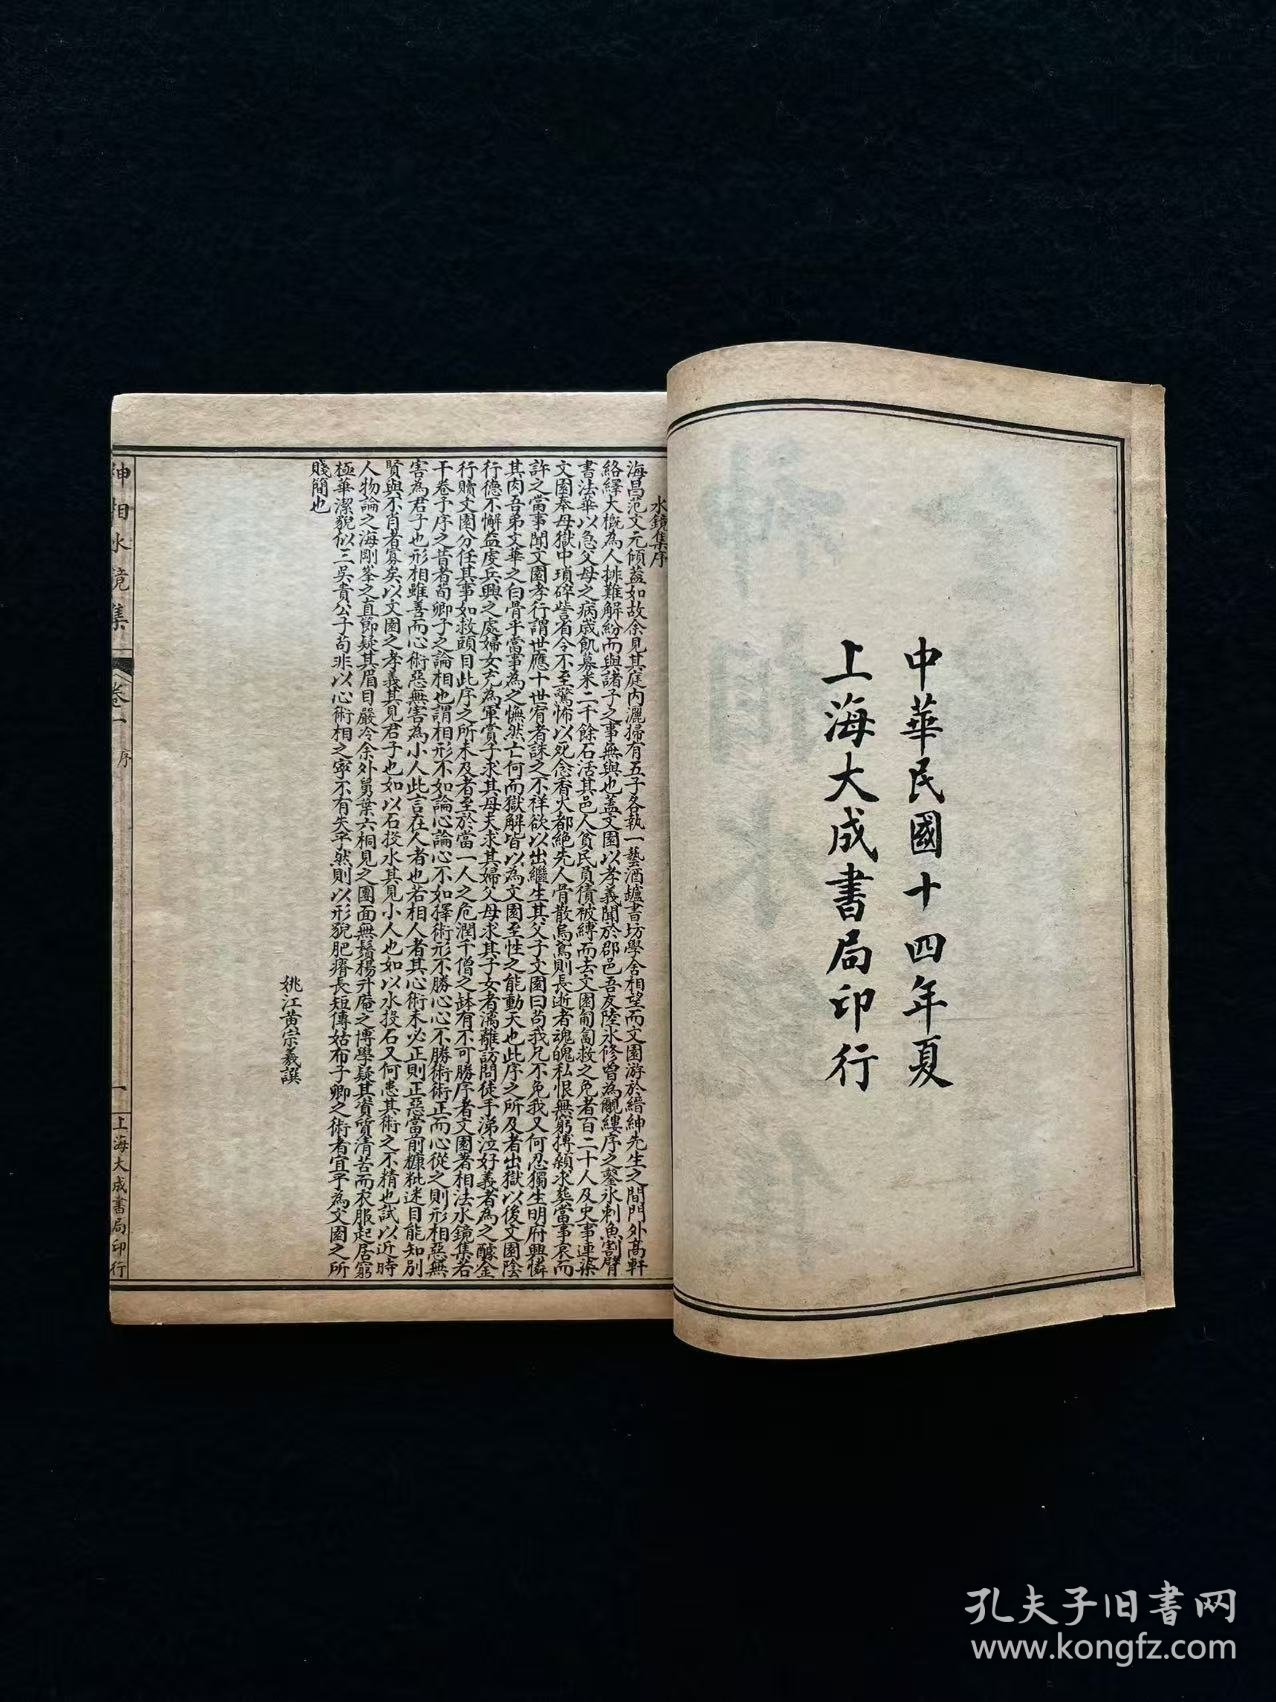 中華民國十四年夏
上海大成書局印行
水鏡集序
海昌范文元傾蓋如故余見其庭內灑掃有五子各執一藝酒壚書坊學舍相望而文園游於縉紳先生之間門外高軒
絡繹大槪為人排難解紛而與諸子之事無與也蓋文園以孝義聞於郡邑吾友陸氷修曾為覼縷序之鑿氷刺魚割臂
書法華以急父母之病歲飢募米二千餘石活其邑人貧民負債被縛而去文園匍匐救之免者百二十人及史事連染
文園奉母獄中瑣碎訾省今不至驚怖以死念香火都絶先人骨散烏鳶則長逝者魂魄私恨無窮搏顙求葬當事哀而
許之當事聞文園孝行謂世應十世宥者誅之不祥欲以出繼生其父子文園曰苟我兄不免我又何忍獨生明府興憐
其肉吾弟文華之白骨乎當事為之憮然亡何而獄解皆以為文園至性之能動天也此序之所及者出獄以後文園陰
行德不懈益虔兵興之處婦女充為軍賞子求其母夫求其婦父母求其子女者滿離訪問徒手涕泣好義者為之醵金
行贖文園分任其事如救頭目此序之所未及者至於當一人之危潤千僧之缽有不可勝序者文園著相法水鏡集若
干卷予序之昔者荀卿子之論相也謂相形不如論心論心不如擇術形不勝心心不勝術術正而心從之則形相惡無
害為君子也形相雖善而心術惡無害為小人此言在人者也若相人者其心術未必正則正惡當前糠粃迷目能知別
賢與不肖者寡矣以文園之孝義其見君子也如以石投水其見小人也如以水投石又何患其術之不精也試以近時
人物論之海剛峯之直節疑其眉目嚴冷余外舅葉六桐見之團面無鬚楊升庵之博學疑其資質清苦而衣服起居窮
極華潔貌似三吳貴公子苟非以心術相之寧不有失乎然則以形貌肥瘠長短傳姑布子卿之術者宜乎為文園之所
賤簡也
姚江黃宗羲譔
神相水鏡集
卷一
序
一
上海大成書局印行
孔夫子旧书网
www.kongfz.com